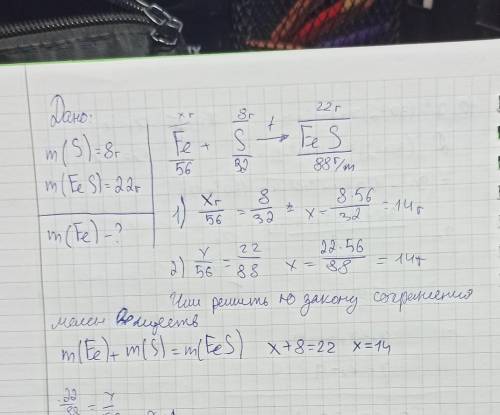 Дано:
m(S)=8г
m(FeS)=22г
m(Fe)-?
xг 8г 22г
Fe + S t→ FeS
56 32 88г/m
1) xг/56 = 8/32 = x = 8·56/32 = 14г
2) x/56 = 22/88 x = 22·56/88 = 14г
Или решить по закону сохранения
массы веществ
m(Fe)+m(S)=m(FeS) x+8=22 x=14
22/88 =